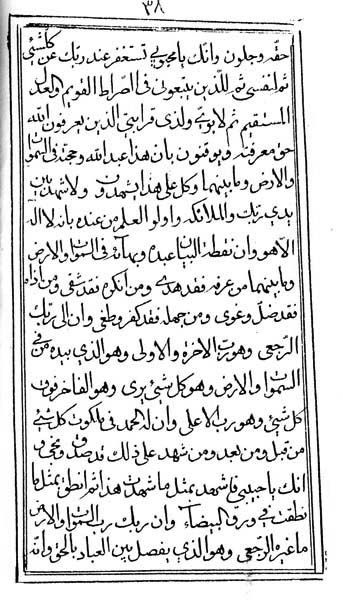 ٣٨
حقه وجلون وانك يا محبوبي تستغفر عند ربك عن كلشئ
ثم لنفسي ثم للذين يتبعوني في الصراط القويم والعدل
المستقيم ثم لابوي ولذي قرابتي الذين يعرفون الله
حق معرفته ويوقنون بان هذا عبد الله وحجته في السموات
والارض وما بينهما وكل على هذا يشهدون ولا شهدن بين
يدي ربك والملائكة واولو العلم من عنده بانه لا اله
الا هو وان نقطة البيان عبده وبهائه في السموات والارض
وما بينهما من عرفه فقد هدى ومن انكره فقد شقى ومن اذاه
فقد ضل وغوى ومن جهله فقد كفر وطغى وان الى ربك
الرجعى وهو رب الآخرة والاولى وهو الذي بيده من في
السموات والارض وهو كل شئ يرى وهو القاهر فوق
كل شئ وهو رب الاعلى وان له الحمد في ملكوت كل شئ
من قبل ومن بعد ومن شهد على ذلك قد صدق ونجى و
انك يا حبيبي فاشهد بمثل ما شهدت هذا ثم انطق بمثل ما
نطقت في ورق البيضاء وان ربك رب السموات والارض
ما غيره الرجعى وهو الذي يفصل بين العباد بالحق وانه